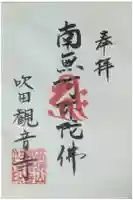 奉拝
南無阿弥陀佛
吹田観音寺